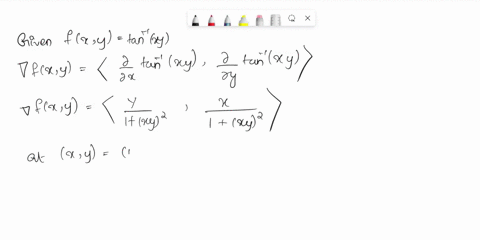 Given f(x,y) = tan⁻¹(xy)
∇f(x,y) = ⟨ ∂/∂x tan⁻¹(xy), ∂/∂y tan⁻¹(xy) ⟩
∇f(x,y) = ⟨ y/(1+(xy)²), x/(1+(xy)²) ⟩
at (x,y) = (1